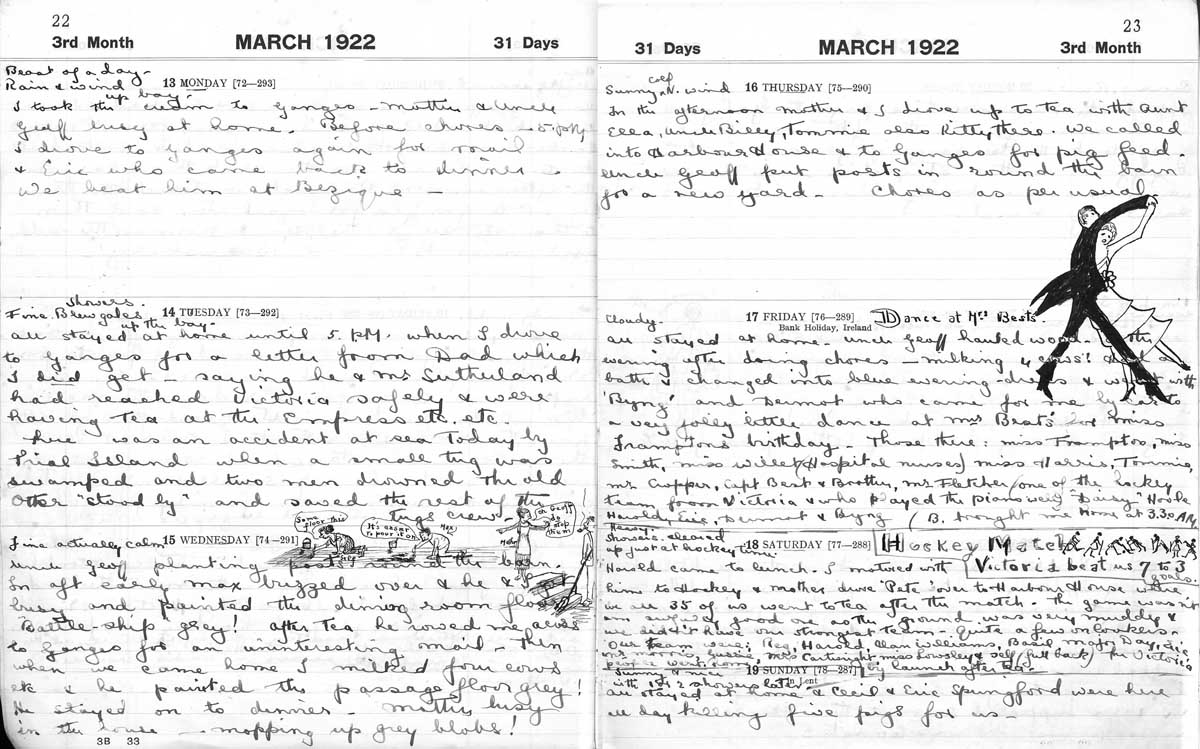 22
3rd Month MARCH 1922 31 Days
Beast of a day -
Rain & wind up bay. 13 MONDAY [72—293]
I took the cream to Ganges - mother & Uncle
Geoff busy at home. Before chores - 5. p.m
I drove to Ganges again for mail
& Eric who came back to dinner -
We beat him at Bezique -
showers.
Fine. Blew gales up the bay - 14 TUESDAY [73—292]
All stayed at home until 5. P.M. when I drove
to Ganges for a letter from Dad which
I did get - saying he & Mr Sutherland
had reached Victoria safely & were
having tea at the Empress etc. etc.
There was an accident at sea today by
Trial Island when a small tug was
swamped and two men drowned the old
Otter "stood by" and saved the rest of the
tugs crew.
Some floor this
It's easier to pour it on
Max
Mother
O Geoff do stop them!
Fine actually calm 15 WEDNESDAY [74—291]
Uncle Geoff planting posts round the barn.
In aft early Max buzzed over & he & I
busy and painted the dining room floor
Battle-ship grey! After tea he rowed me across
to Ganges for an uninteresting mail - Then
when we came home I milked four cows
etc & he painted the passage floor grey!
He stayed on to dinner - Mother busy
in the house - mopping up grey blobs!
3B 33
23
31 Days MARCH 1922 3rd Month
Sunny cold N. wind 16 THURSDAY [75—290]
In the afternoon mother & I drove up to tea with Aunt
Ella, Uncle Billy, Tommie also Kitty there. We called
into Harbour House & to Ganges for pig feed.
Uncle Geoff put posts in round the barn
for a new yard - Chores as per usual
Cloudy - 17 FRIDAY [76—289] Dance at Mrs Bests.
Bank Holiday, Ireland
All stayed at home - Uncle Geoff hauled wood - This
evening after doing chores - milking 4 cows
bath I changed into blue evening-dress & went with
'Byng' and Dermot who came for me by car to
a very jolly little dance at Mrs Bests for Miss
Frampton's birthday - Those there: Miss Frampton, Miss
Smith, Miss Willey (Hospital nurses) Miss Harris, Tommie
Mr Cropper, Capt Best & Brother, Mr Fletcher (one of the hockey
team from Victoria & who played the piano well) "Daisy"
Harold, Eric, Dermot & Byng (B. brought me home at 3.30 AM.
Heavy showers - cleared
up just at hockey time 18 SATURDAY [77—288] Hockey Match
Victoria beat us 7 to 3 goals.
Harold came to lunch. I motored with
him to Hockey & mother drove 'Pete' over to Harbour House where
in all 35 of us went to tea after the match - The game wasn't
an awfully good one as the ground was very muddy &
we didn't have our strongest team - Quite a few onlookers -
Our team were: Harold, Williams, Basil, Eric
Miss Cartwright, Miss self (full back) The Victoria
people went home by launch after tea.
Sunny & nice 19 SUNDAY [78—287]
with 1 or 2 showers Lent
All stayed at home & Cecil & Eric Springford were here
all day killing five pigs for us -